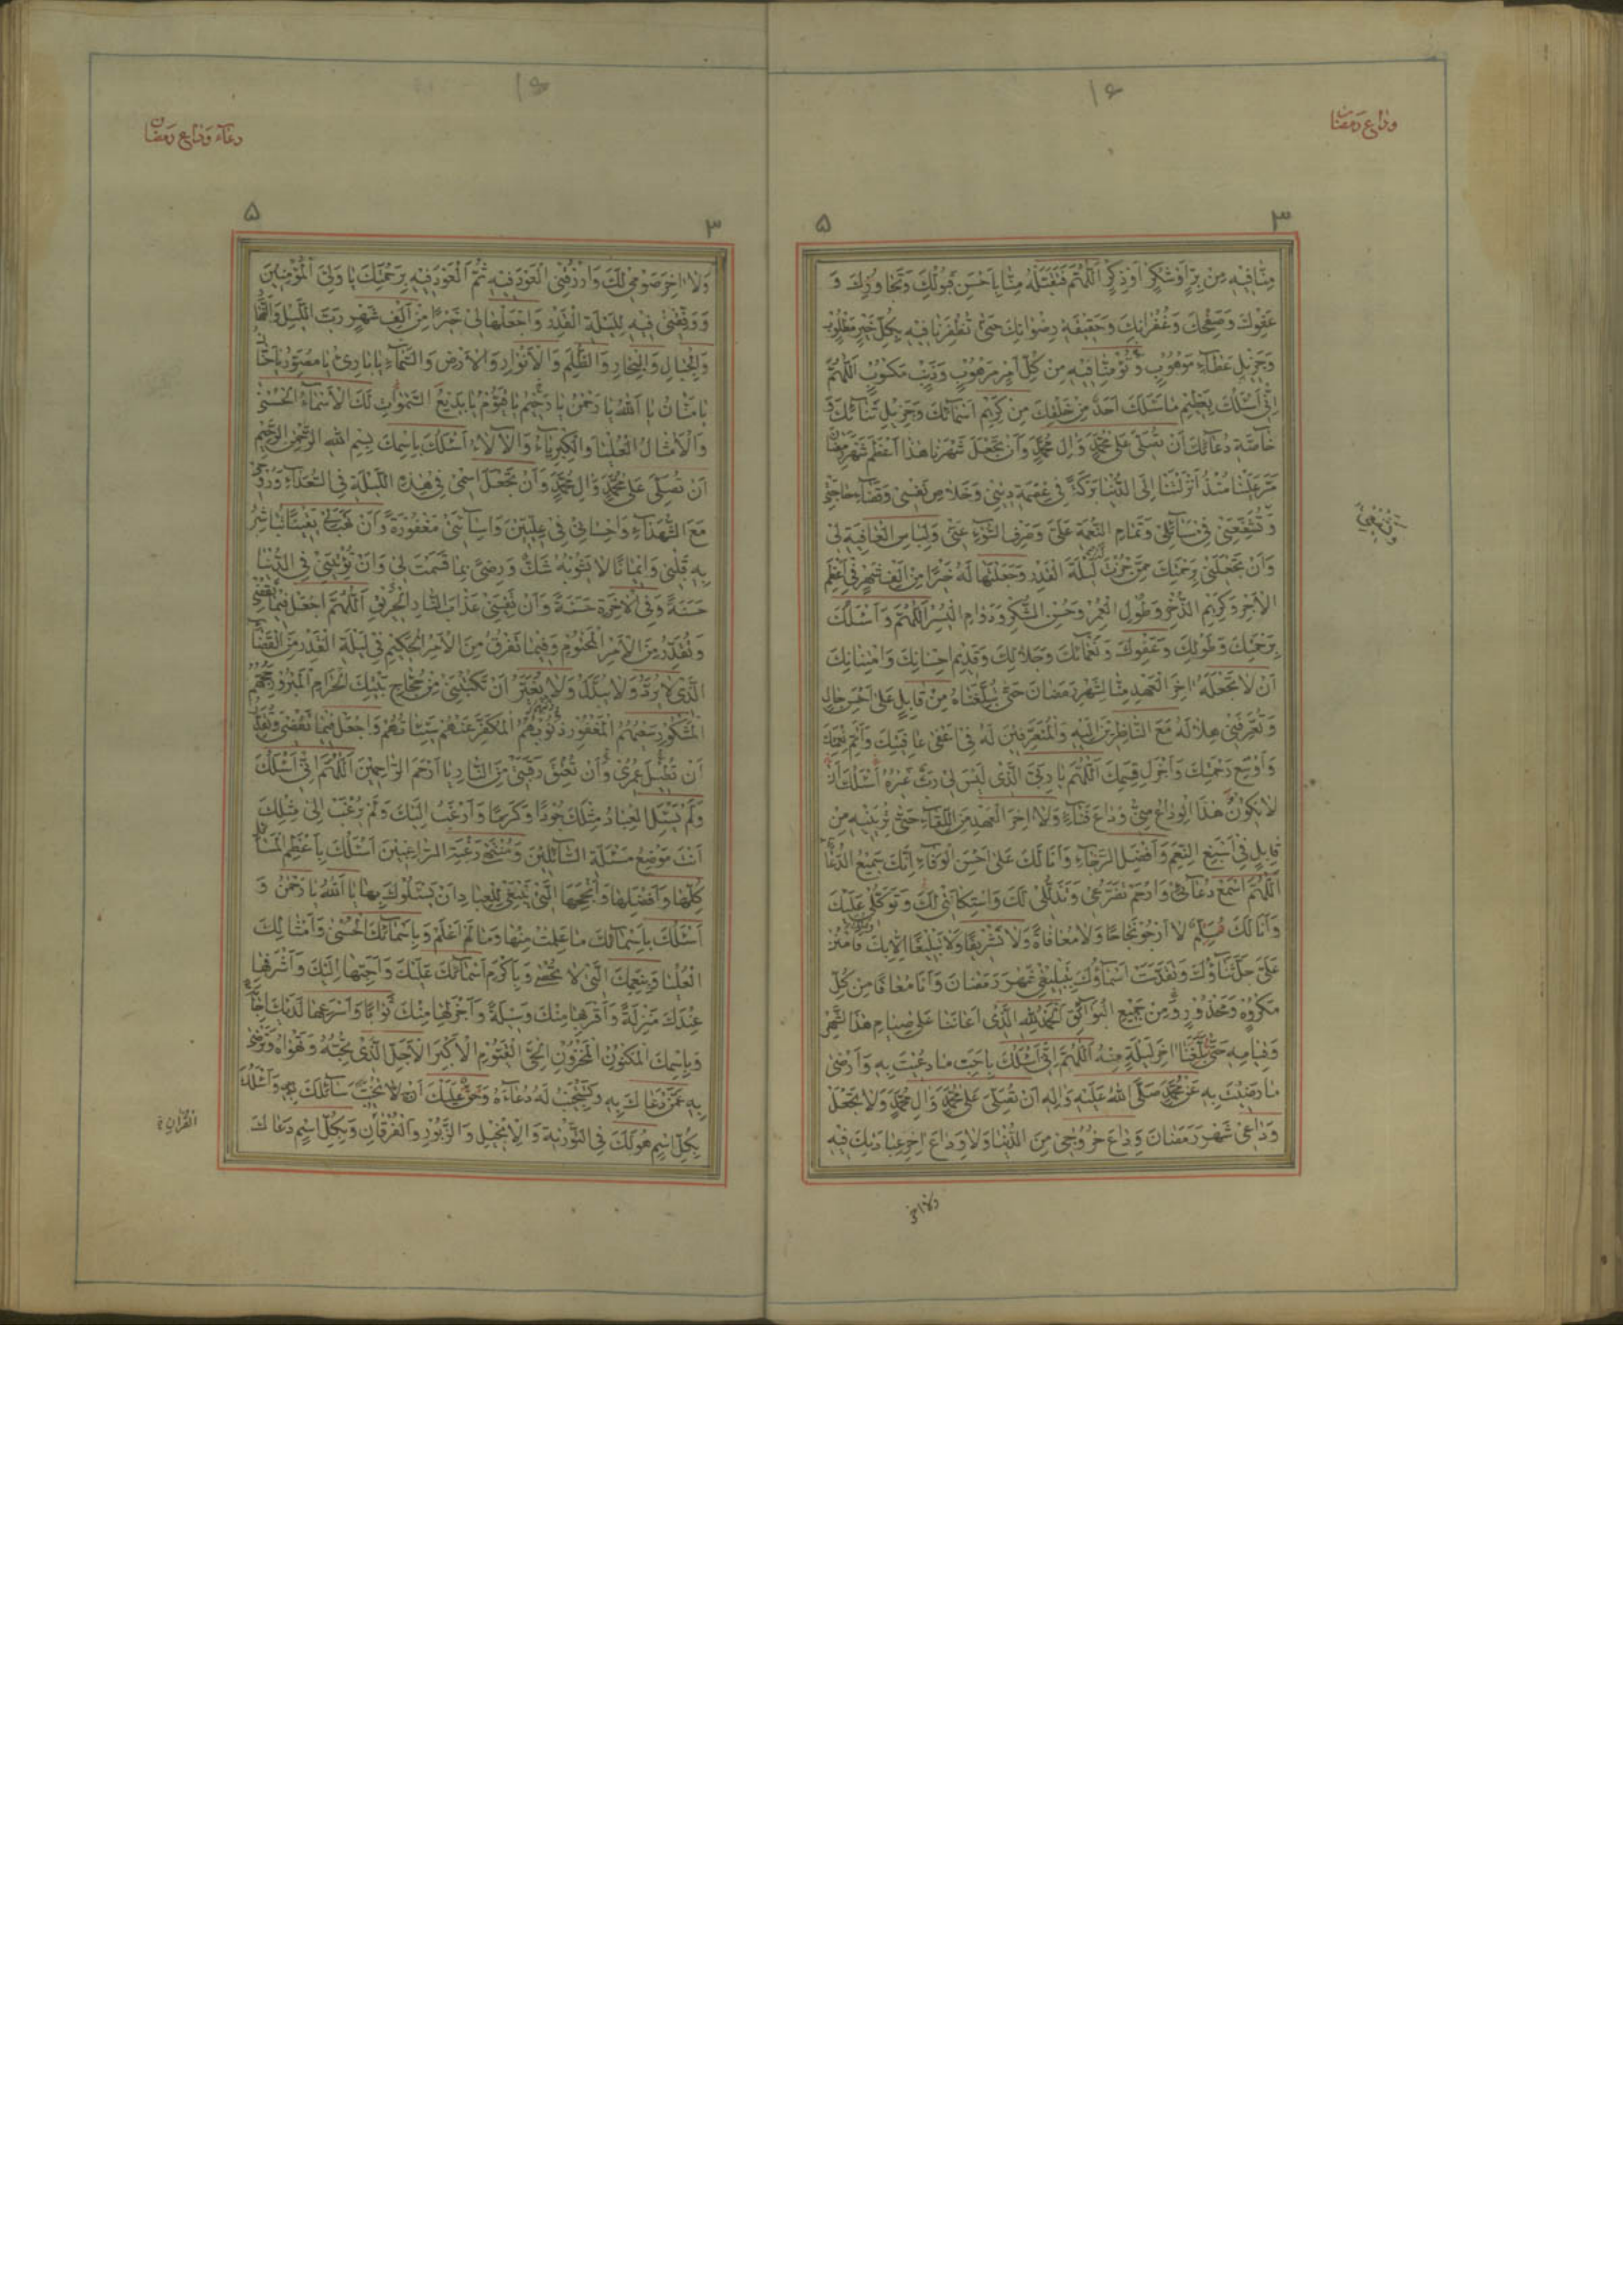 وداع رمضان
۱۶
۳
۵
مِنَّا فِيهِ مِنْ بِرٍّ اَوْ شُكْرٍ اَوْ ذِكْرٍ اَللّٰهُمَّ فَتَقَبَّلْهُ مِنَّا بِاَحْسَنِ قَبُولِكَ وَتَجَاوُزِكَ وَ
عَفْوِكَ وَصَفْحِكَ وَغُفْرَانِكَ وَحَقِيقَةِ رِضْوَانِكَ حَتّٰى تُظْفِرَنَا فِيهِ بِكُلِّ خَيْرٍ مَطْلُوبٍ
وَجَزِيلِ عَطَاءٍ مَوْهُوبٍ وَتُؤْمِنَّا فِيهِ مِنْ كُلِّ اَمْرٍ مَرْهُوبٍ وَذَنْبٍ مَكْسُوبٍ اَللّٰهُمَّ
اِنِّى اَسْئَلُكَ بِعَظِيمِ مَا سَئَلَكَ اَحَدٌ مِنْ خَلْقِكَ مِنْ كَرِيمِ اَسْمَائِكَ وَجَزِيلِ ثَنَائِكَ وَ
خَاصَّةِ دُعَائِكَ اَنْ تُصَلِّىَ عَلٰى مُحَمَّدٍ وَاٰلِ مُحَمَّدٍ وَاَنْ تَجْعَلَ شَهْرَنَا هٰذَا اَعْظَمَ شَهْرِ رَمَضَانَ
مَرَّ عَلَيْنَا مُنْذُ اَنْزَلْتَنَا اِلَى الدُّنْيَا بَرَكَةً فِى عِصْمَةِ دِينِى وَخَلَاصِ نَفْسِى وَقَضَاءِ حَاجَتِى
وَتُشَفِّعَنِى فِى مَسَائِلِى وَتَمَامِ النِّعْمَةِ عَلَىَّ وَصَرْفِ السُّوءِ عَنِّى وَلِبَاسِ الْعَافِيَةِ لِى
وَاَنْ تَجْعَلَنِى بِرَحْمَتِكَ مِمَّنْ حُزْتَ لَهُ لَيْلَةَ الْقَدْرِ وَجَعَلْتَهَا لَهُ خَيْرًا مِنْ اَلْفِ شَهْرٍ فِى اَعْظَمِ
الْاَجْرِ وَكَرِيمِ الذُّخْرِ وَطُولِ الْعُمْرِ وَحُسْنِ الشُّكْرِ وَدَوَامِ الْيُسْرِ اَللّٰهُمَّ وَاَسْئَلُكَ
بِرَحْمَتِكَ وَطَوْلِكَ وَعَفْوِكَ وَنَعْمَائِكَ وَجَلَالِكَ وَقَدِيمِ اِحْسَانِكَ وَامْتِنَانِكَ
اَنْ لَا تَجْعَلَهُ اٰخِرَ الْعَهْدِ مِنَّا لِشَهْرِ رَمَضَانَ حَتّٰى تُبَلِّغَنَاهُ مِنْ قَابِلٍ عَلٰى اَحْسَنِ حَالٍ
وَتُعَرِّفَنِى هِلَالَهُ مَعَ النَّاظِرِينَ اِلَيْهِ وَالْمُتَعَرِّفِينَ لَهُ فِى اَعْفٰى عَافِيَتِكَ وَاَتَمِّ نِعْمَتِكَ
وَاَوْسَعِ رَحْمَتِكَ وَاَجْزَلِ قِسَمِكَ اَللّٰهُمَّ يَا رَبِّىَ الَّذِى لَيْسَ لِى رَبٌّ غَيْرُهُ اَسْئَلُكَ اَنْ
لَا يَكُونَ هٰذَا الْوَدَاعُ مِنِّى وَدَاعَ فَنَاءٍ وَلَا اٰخِرَ الْعَهْدِ مِنَ اللِّقَاءِ حَتّٰى تُرِيَنِيهِ مِنْ
قَابِلٍ فِى اَسْبَغِ النِّعَمِ وَاَفْضَلِ الرَّخَاءِ وَاَنَا لَكَ عَلٰى اَحْسَنِ الْوَفَاءِ اِنَّكَ سَمِيعُ الدُّعَاءِ
اَللّٰهُمَّ اسْمَعْ دُعَائِى وَارْحَمْ تَضَرُّعِى وَتَذَلُّلِى لَكَ وَاسْتِكَانَتِى لَكَ وَتَوَكُّلِى عَلَيْكَ
وَاَنَا لَكَ سِلْمٌ لَا اَرْجُو نَجَاحًا وَلَا مُعَافَاةً وَلَا تَشْرِيفًا وَلَا تَبْلِيغًا اِلَّا بِكَ فَامْنُنْ
عَلَىَّ جَلَّ ثَنَاؤُكَ وَتَقَدَّسَتْ اَسْمَاؤُكَ بِتَبْلِيغِى شَهْرَ رَمَضَانَ وَاَنَا مُعَافًا مِنْ كُلِّ
مَكْرُوهٍ وَمَحْذُورٍ وَمِنْ جَمِيعِ الْبَوَائِقِ اَلْحَمْدُ لِلّٰهِ الَّذِى اَعَانَنَا عَلٰى صِيَامِ هٰذَا الشَّهْرِ
وَقِيَامِهِ حَتّٰى بَلَّغَنَا اٰخِرَ لَيْلَةٍ مِنْهُ اَللّٰهُمَّ اِنِّى اَسْئَلُكَ بِاَحَبِّ مَا دُعِيتَ بِهِ وَاَرْضٰى
مَا رَضِيتَ بِهِ عَنْ مُحَمَّدٍ صَلَّى اللّٰهُ عَلَيْهِ وَاٰلِهِ اَنْ تُصَلِّىَ عَلٰى مُحَمَّدٍ وَاٰلِ مُحَمَّدٍ وَلَا تَجْعَلْ
وَدَاعِى شَهْرَ رَمَضَانَ وَدَاعَ خُرُوجِى مِنَ الدُّنْيَا وَلَا وَدَاعَ اٰخِرِ عِبَادَتِكَ فِيهِ
ولا اخر
دعاء وداع رمضان
۱۶
۳
۵
وَلَا اٰخِرَ صَوْمِى لَكَ وَارْزُقْنِى الْعَوْدَ فِيهِ ثُمَّ الْعَوْدَ فِيهِ بِرَحْمَتِكَ يَا وَلِىَّ الْمُؤْمِنِينَ
وَوَفِّقْنِى فِيهِ لِلَيْلَةِ الْقَدْرِ وَاجْعَلْهَا لِى خَيْرًا مِنْ اَلْفِ شَهْرٍ رَبَّ اللَّيْلِ وَالنَّهَارِ
وَالْجِبَالِ وَالْبِحَارِ وَالظُّلَمِ وَالْاَنْوَارِ وَالْاَرْضِ وَالسَّمَاءِ يَا بَارِئُ يَا مُصَوِّرُ يَا حَنَّانُ
يَا مَنَّانُ يَا اَللّٰهُ يَا رَحْمٰنُ يَا رَحِيمُ يَا قَيُّومُ يَا بَدِيعَ السَّمٰوَاتِ لَكَ الْاَسْمَاءُ الْحُسْنٰى
وَالْاَمْثَالُ الْعُلْيَا وَالْكِبْرِيَاءُ وَالْاٰلَاءُ اَسْئَلُكَ بِاسْمِكَ بِسْمِ اللّٰهِ الرَّحْمٰنِ الرَّحِيمِ
اَنْ تُصَلِّىَ عَلٰى مُحَمَّدٍ وَاٰلِ مُحَمَّدٍ وَاَنْ تَجْعَلَ اسْمِى فِى هٰذِهِ اللَّيْلَةِ فِى السُّعَدَاءِ وَرُوحِى
مَعَ الشُّهَدَاءِ وَاِحْسَانِى فِى عِلِّيِّينَ وَاِسَائَتِى مَغْفُورَةً وَاَنْ تَهَبَ لِى يَقِينًا تُبَاشِرُ
بِهِ قَلْبِى وَاِيمَانًا لَا يَشُوبُهُ شَكٌّ وَرِضًى بِمَا قَسَمْتَ لِى وَاَنْ تُؤْتِيَنِى فِى الدُّنْيَا
حَسَنَةً وَفِى الْاٰخِرَةِ حَسَنَةً وَاَنْ تَقِيَنِى عَذَابَ النَّارِ الْحَرِيقِ اَللّٰهُمَّ اجْعَلْ فِيمَا تَقْضِى
وَتُقَدِّرُ مِنَ الْاَمْرِ الْمَحْتُومِ وَفِيمَا تَفْرُقُ مِنَ الْاَمْرِ الْحَكِيمِ فِى لَيْلَةِ الْقَدْرِ مِنَ الْقَضَاءِ
الَّذِى لَا يُرَدُّ وَلَا يُبَدَّلُ وَلَا يُغَيَّرُ اَنْ تَكْتُبَنِى مِنْ حُجَّاجِ بَيْتِكَ الْحَرَامِ الْمَبْرُورِ حَجُّهُمْ
الْمَشْكُورِ سَعْيُهُمُ الْمَغْفُورِ ذُنُوبُهُمُ الْمُكَفَّرِ عَنْهُمْ سَيِّئَاتُهُمْ وَاجْعَلْ فِيمَا تَقْضِى وَتُقَدِّرُ
اَنْ تُطِيلَ عُمْرِى وَاَنْ تُعْتِقَ رَقَبَتِى مِنَ النَّارِ يَا اَرْحَمَ الرَّاحِمِينَ اَللّٰهُمَّ اِنِّى اَسْئَلُكَ
وَلَمْ يَسْئَلِ الْعِبَادُ مِثْلَكَ جُودًا وَكَرَمًا وَاَرْغَبُ اِلَيْكَ وَلَمْ يُرْغَبْ اِلٰى مِثْلِكَ
اَنْتَ مَوْضِعُ مَسْئَلَةِ السَّائِلِينَ وَمُنْتَهٰى رَغْبَةِ الرَّاغِبِينَ اَسْئَلُكَ بِاَعْظَمِ الْمَسَائِلِ
كُلِّهَا وَاَفْضَلِهَا وَاَنْجَحِهَا الَّتِى يَنْبَغِى لِلْعِبَادِ اَنْ يَسْئَلُوكَ بِهَا يَا اَللّٰهُ يَا رَحْمٰنُ وَ
اَسْئَلُكَ بِاَسْمَائِكَ مَا عَلِمْتُ مِنْهَا وَمَا لَمْ اَعْلَمْ وَبِاَسْمَائِكَ الْحُسْنٰى وَاَمْثَالِكَ
الْعُلْيَا وَبِنِعَمِكَ الَّتِى لَا تُحْصٰى وَبِاَكْرَمِ اَسْمَائِكَ عَلَيْكَ وَاَحَبِّهَا اِلَيْكَ وَاَشْرَفِهَا
عِنْدَكَ مَنْزِلَةً وَاَقْرَبِهَا مِنْكَ وَسِيلَةً وَاَجْزَلِهَا مِنْكَ ثَوَابًا وَاَسْرَعِهَا لَدَيْكَ اِجَابَةً
وَبِاسْمِكَ الْمَكْنُونِ الْمَخْزُونِ الْحَىِّ الْقَيُّومِ الْاَكْبَرِ الْاَجَلِّ الَّذِى تُحِبُّهُ وَتَهْوَاهُ وَتَرْضٰى
بِهِ عَمَّنْ دَعَاكَ بِهِ وَتَسْتَجِيبُ لَهُ دُعَاءَهُ وَحَقٌّ عَلَيْكَ اَنْ لَا تُخَيِّبَ سَائِلَكَ بِهِ وَاَسْئَلُكَ
بِكُلِّ اسْمٍ هُوَ لَكَ فِى التَّوْرٰيةِ وَالْاِنْجِيلِ وَالزَّبُورِ وَالْفُرْقَانِ وَبِكُلِّ اسْمٍ دَعَاكَ
القرآن